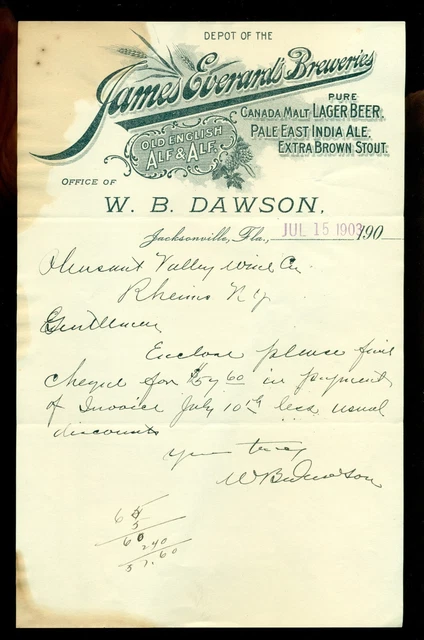 DEPOT OF THE
James Everard's Breweries
PURE
CANADA MALT LAGER BEER.
PALE EAST INDIA ALE.
EXTRA BROWN STOUT.
OLD ENGLISH
ALF & ALF.
OFFICE OF
W. B. DAWSON,
Jacksonville, Fla., JUL 15 1903 190
Pleasant Valley Wine Co
Rheims N Y
Gentlemen
Enclose please find
cheque for $57 60 in payment
of Invoice July 10th less usual
discounts
Yours truly
W B Dawson
6
60
2 40
57.60